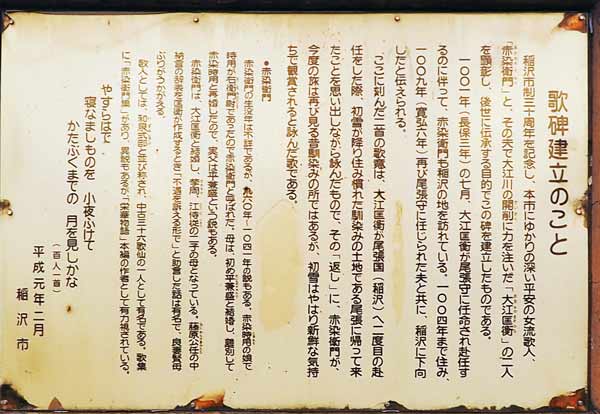 歌碑建立のこと
稲沢市制三十周年を記念し、本市にゆかりの深い平安の女流歌人、
「赤染衛門」と、その夫で大江川の開削に力を注いだ「大江匡衡」の二人
を顕彰し、後世に伝承する目的でこの碑を建立したものである。
一〇〇一年(長保三年)の七月、大江匡衡が尾張守に任命され赴任す
るのに伴って、赤染衛門も稲沢の地を訪れている。一〇〇四年まで住み、
一〇〇九年(寛弘六年)再び尾張守に任じられた夫と共に、稲沢に下向
したと伝えられる。
ここに刻んだ二首の歌意は、大江匡衡が尾張国(稲沢)へ二度目の赴
任をした際、初雪が降り住み慣れた馴染みの土地である尾張に帰って来
たことを思い出しながら詠んだもので、その「返し」に、赤染衛門が、
今度の旅は再び見る昔馴染みの所ではあるが、初雪はやはり新鮮な気持
ちで観賞されると詠んだ歌である。
●赤染衛門
赤染衛門の生没年は不詳であるが、九六〇年〜一〇四一年の説もある。赤染時用の娘で
時用が右衛門尉であったので赤染衛門と呼ばれた。母は、初め平兼盛と結婚し、離別して
赤染時用と再婚したので、実父は平兼盛という説もある。
赤染衛門は、大江匡衡と結婚し、挙周、江侍従の二子の母となっている。藤原公任の中
納言の辞表を匡衡が作成するとき「不遇を訴える形で」と助言した話は有名で、良妻賢母
ぶりがうかがえる。
歌人としては、和泉式部と並び称され、中古三十六歌仙の一人として有名である。歌集
に「赤染衛門集」があり、異説もあるが「栄華物語」本編の作者として有力視されている。
やすらはで
寝なましものを 小夜ふけて
かたぶくまでの 月を見しかな
(百人一首)
平成元年二月
稲沢市